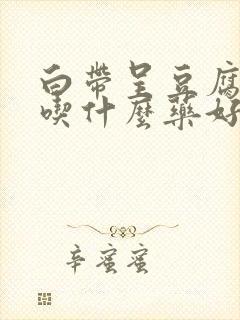 白帶呈豆腐
喫什麼藥好
辛蜜蜜